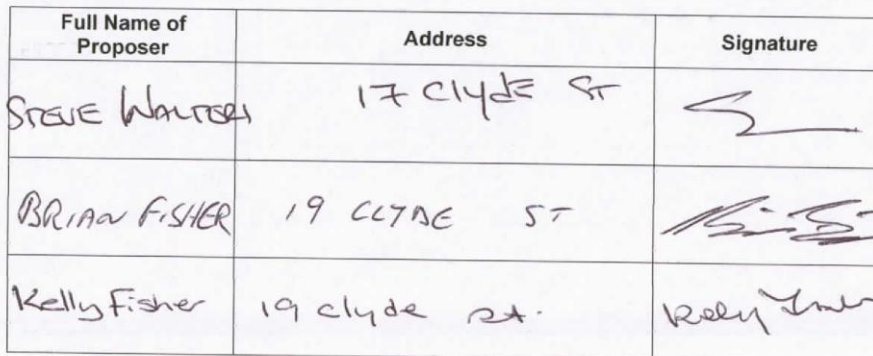 Full Name of
Proposer
Address
Signature
STEVE WALTERS
17 Clyde ST
BRIAN FISHER
19 CLYDE ST
Kelly Fisher
19 clyde st.
Kelly